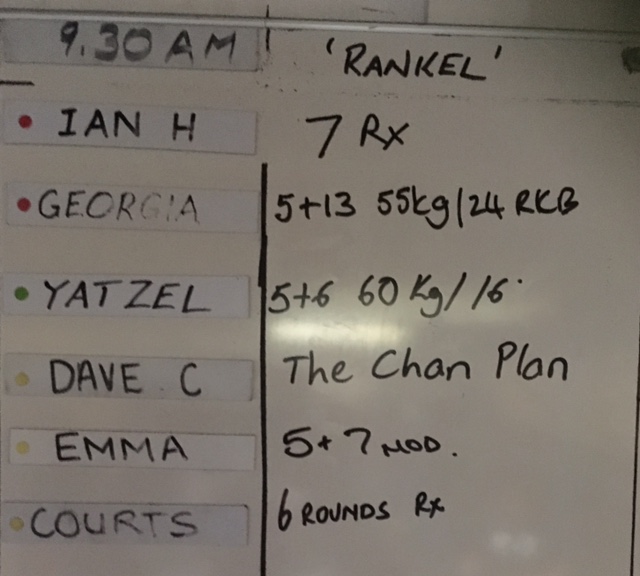 9.30 AM 'RANKEL'
IAN H 7 Rx
GEORGIA 5+13 55kg/24 RKB
YATZEL 5+6 60 Kg/16
DAVE C The Chan Plan
EMMA 5+7 MOD.
COURTS 6 ROUNDS Rx